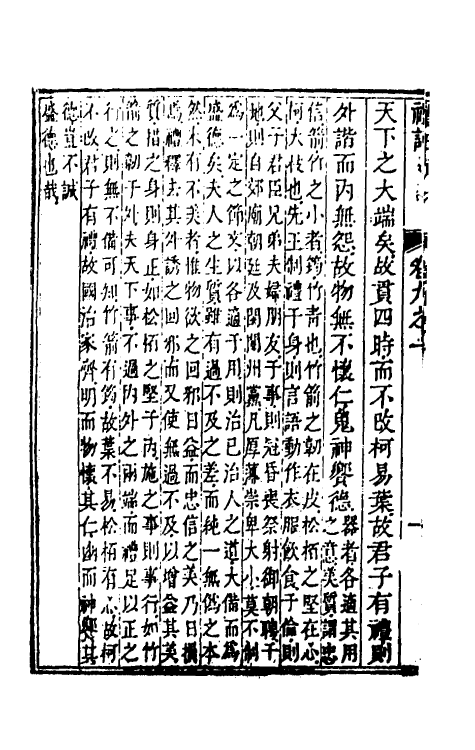 卷九之一
天下之大端矣故貫四時而不改柯易葉故君子有禮則
外諧而內無怨故物無不懷仁鬼神饗德
器者各適其用
之意美質謂忠
信箭竹之小者筠竹青也竹箭之韌在皮松栢之堅在心
何大伎也先王制禮于身則言語動作衣服飲食于倫則
父子君臣兄弟夫婦朋友于事則冠昏喪祭射御朝聘于
地則自郊廟朝廷及閭閻州黨凡厚薄崇卑大小莫不制
為一定之節文以各適于用則治己治人之道大備而為
盛德矣夫人之生質雖有過不及之差而純一無偽之本
然未有不美者惟物欲之回邪日益而忠信之美乃日損
焉禮釋去其外誘之回邪而又使無過不及以增益其美
質措之身則身正如松栢之堅于內施之事則事行如竹
箭之韌于外夫天下事不過內外之兩端而禮足以正之
行之則無不備可知竹箭有筠故葉不易松栢有心故柯
不改君子有禮故國治家齊明而物懷其仁幽而神饗其
德豈不誠
盛德也哉